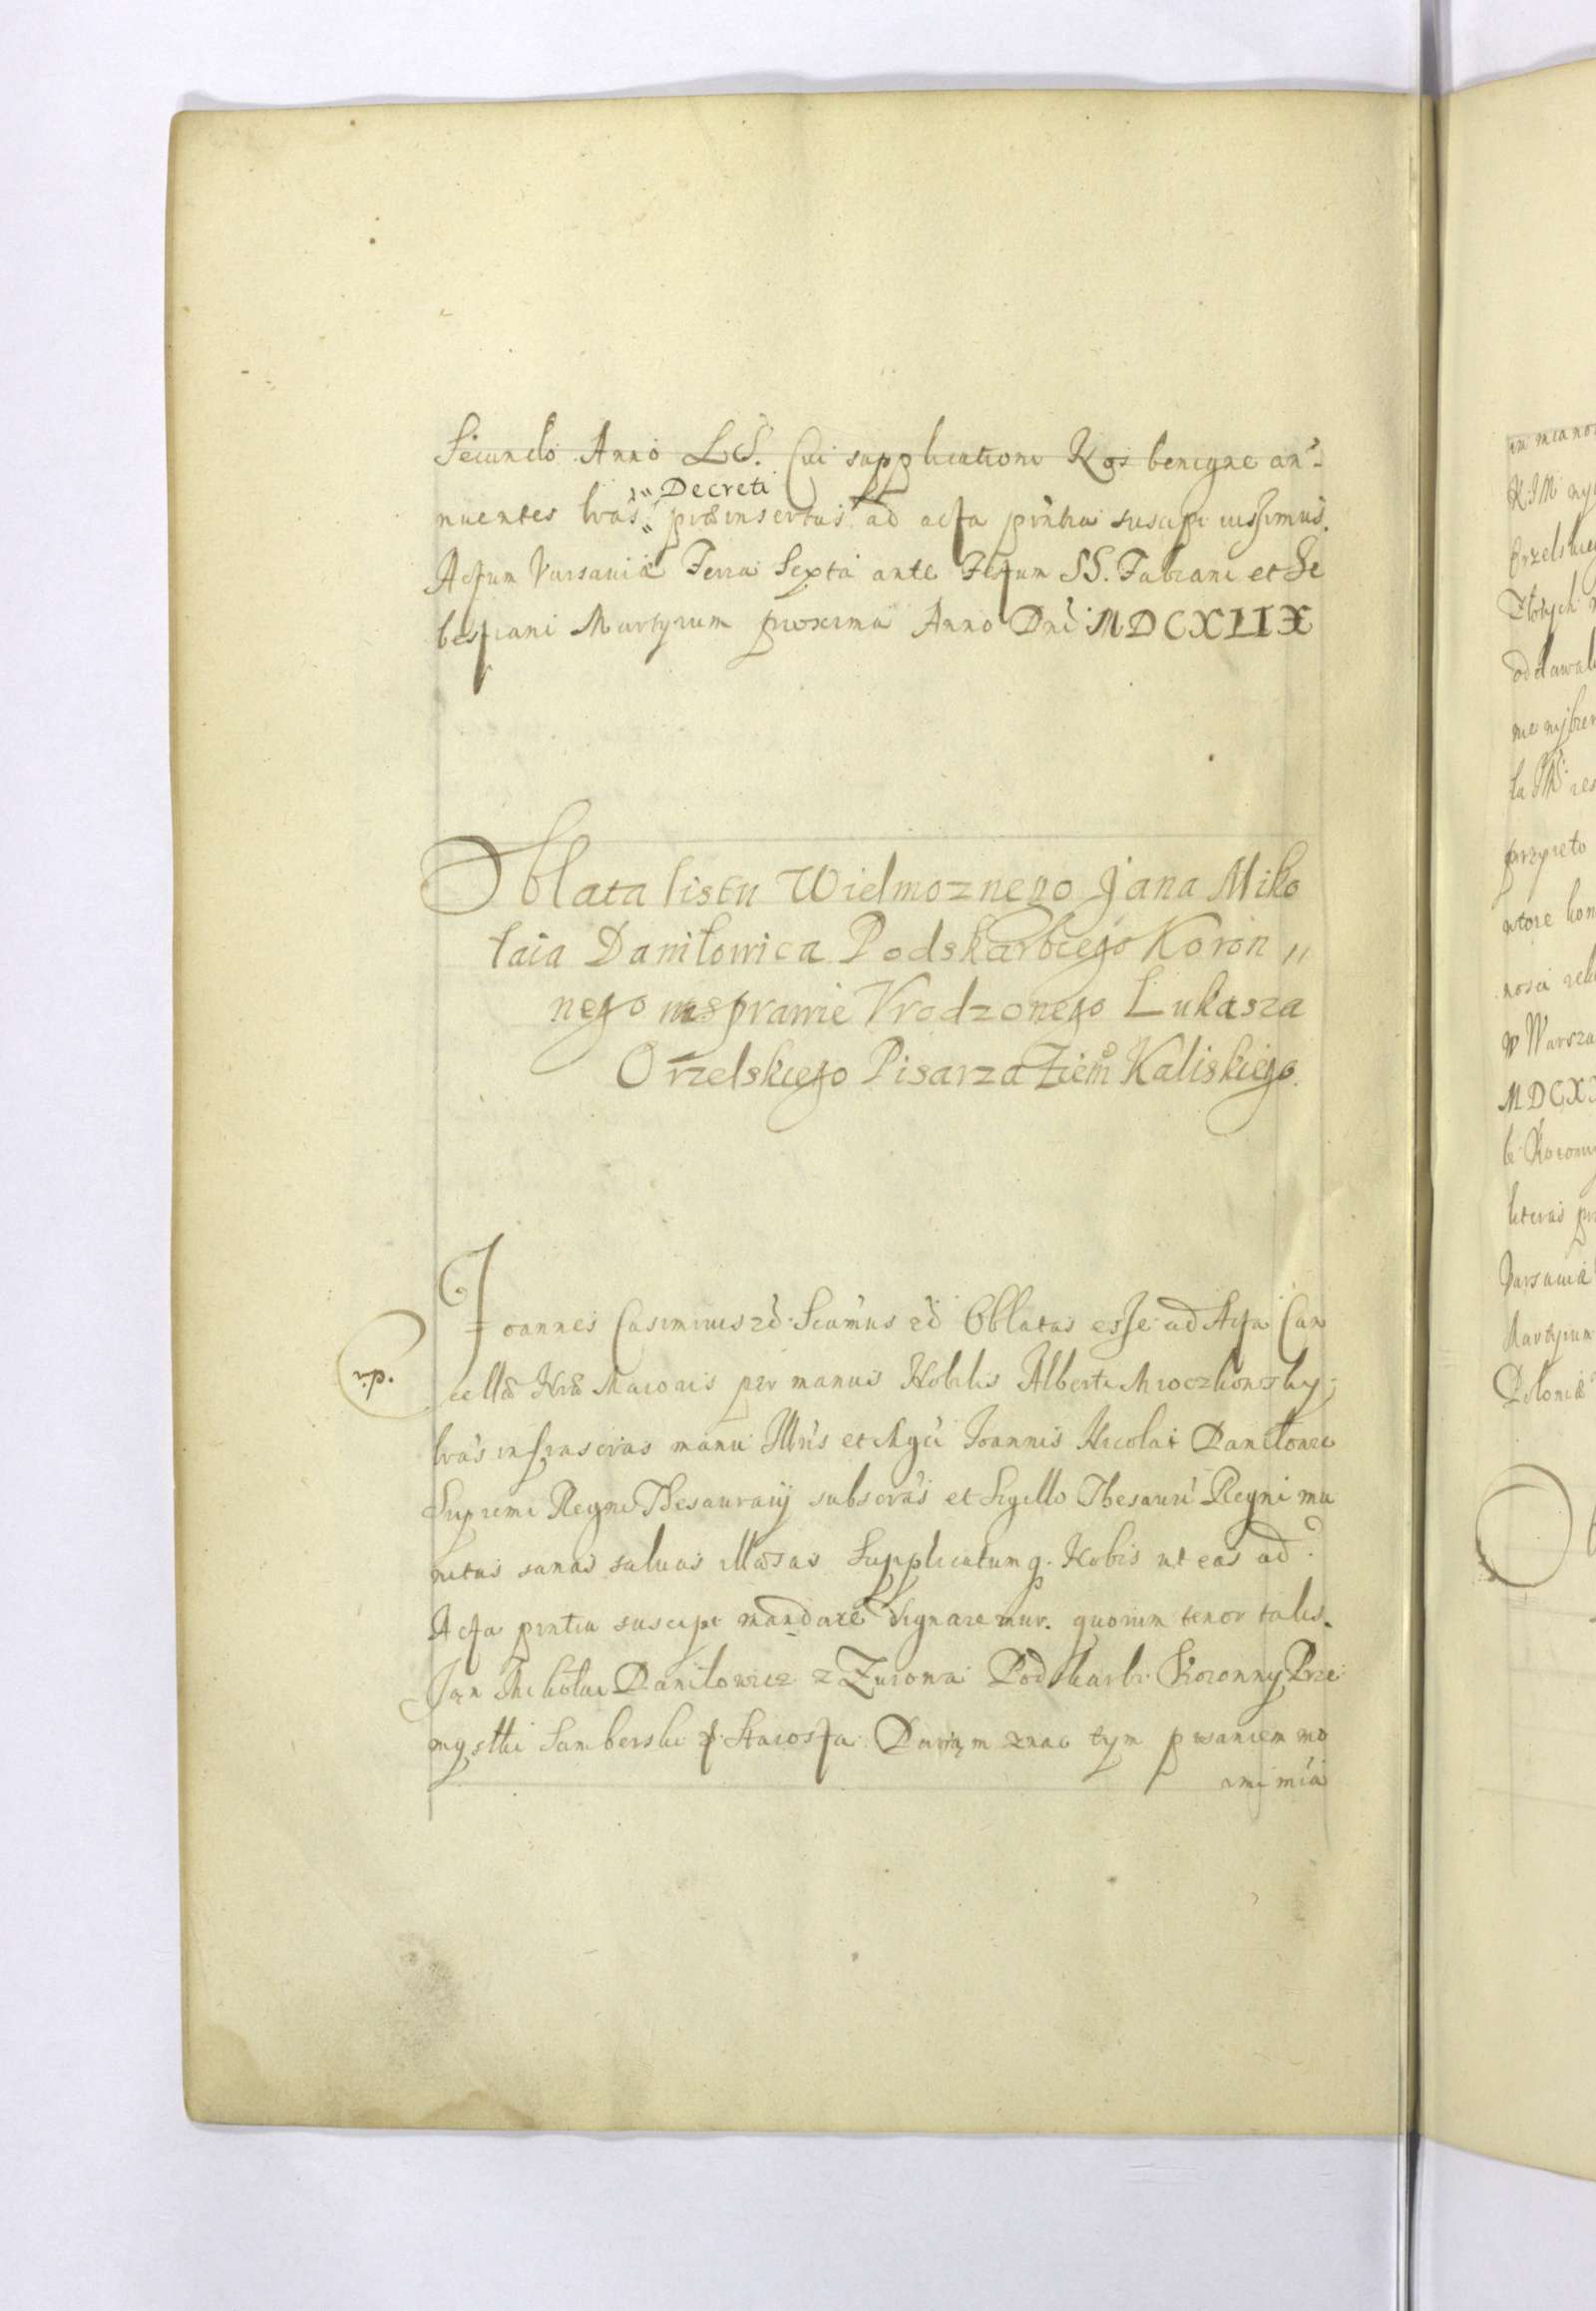 Secundo Anno LS. Cui supplicationi Nos benigne an-
Decreti
nuentes lras praeinsertas ad acta pntia suscipi iussimus.
Actum Varsaviæ Feria Sexta ante Festum SS. Fabiani et Se
bestiani Martyrum proxima Anno Dni MDCXLIX
Oblata listu Wielmoznego Jana Miko
łaia Daniłowica Podskarbiego Koron„
nego wsprawie Vrodzonego Lukasza
Orzelskiego Pisarza Ziem Kaliskiego.
Joannes Casimirus ꝛc̃ Sc̃amus ꝛc̃ Oblatas esse ad Acta Can
cellæ Nræ Maioris per manus Nobilis Alberti Mroczkowsky
lras infrascras manu Illris et Mgci Joannis Nicolai Danilowic
Supremi Regni Thesaurarij subscras et Sigillo Thesauri Regni mu
nitas sanas saluas illæsas Supplicatumq. Nobis ut eas ad
Acta pntia suscipi mandare dignaremur. quorum tenor talis.
Jan Mikołai Daniłowicz z Zurowa Podskarbi Koronny Prze
myslki Samborski Starosta Dawam znac tym pisaniem mo
im mia